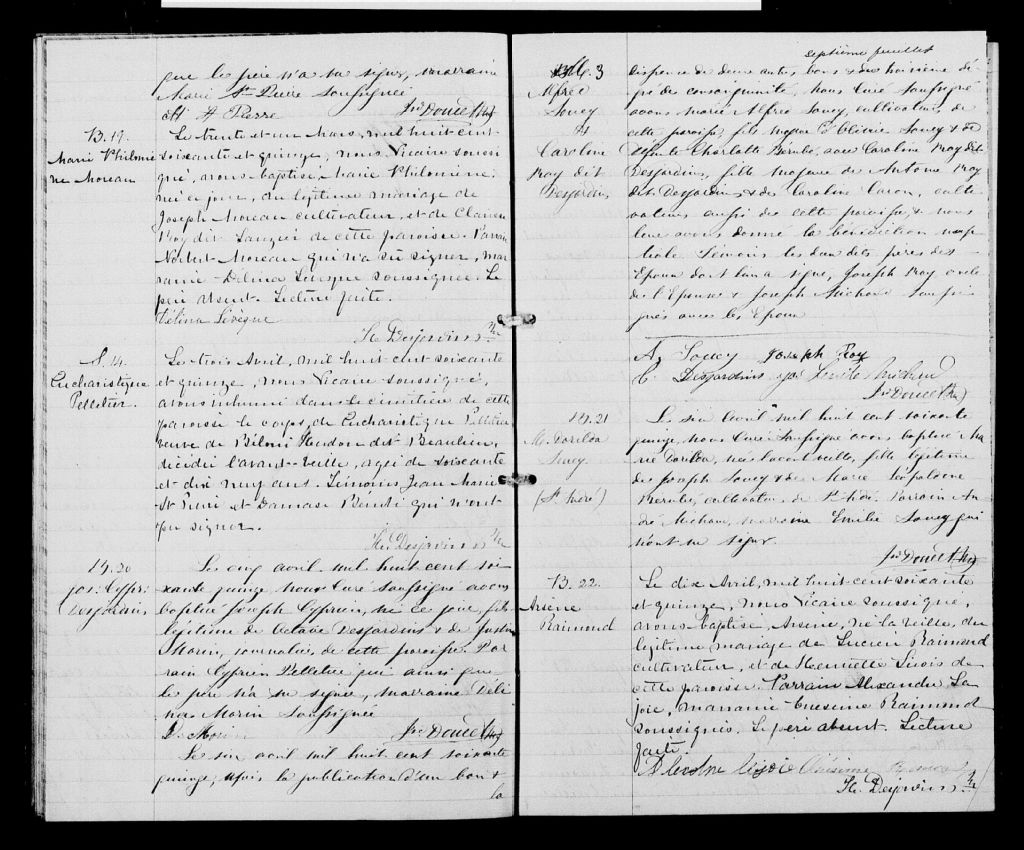 que le père n'a su signer, marraine
Marie St Pierre Soussignée
M St Pierre Jos Doucet Ptre
B. 19.
Marie Philomè
ne Moreau
Le trente et un Mars, mil huit cent
soixante et quinze, nous Vicaire soussi
gné, avons baptisé, Marie Philomène,
née ce jour, du légitime mariage de
Joseph Moreau cultivateur, et de Clarisse
Roy dit Lauzier de cette paroisse. Parrain
Norbert Moreau qui n'a su signer, mar
raine Delina Levesque soussignée. Le
père absent. Lecture faite.
Délina Lévèque
H. Desjardins Ptre
S. 14.
Eucharistique
Pelletier.
Le trois Avril, mil huit cent soixante
et quinze, nous Vicaire soussigné,
avons inhumé dans le cimetière de cette
paroisse le corps de Eucharistique Pelletier
veuve de Béloni Hudon dit Beaulieu,
décédée l'avant-veille, agée de soixante
et dix neuf ans. Témoins Jean Marie
St Pierre et Damase Bérubé qui n'ont
pu signer.
H. Desjardins Ptre
B. 20
Jos. Cypri.
Desjardins
Le cinq avril mil huit cent soi
xante quinze, nous Curé soussigné avons
baptisé Joseph Cyprien, né ce jour, fils
légitime de Octave Desjardins & de Justine
Morin, journalier de cette paroisse. Par
rain Cyprien Pelletier qui ainsi que
le père n'a su signer, marraine Déli
na Morin Soussignée
D. Morin Jos Doucet Ptre
Le six avril mil huit cent soixante
quinze, après la publication d'un ban &
la
septième feuillet
M. 3
Alfred
Soucy
&
Caroline
Roy dit
Desjardins
dispense de deux autres bans & du troisième dé-
gré de consanguinité, Nous Curé soussigné
avons marié Alfred Soucy, cultivateur de
cette paroisse, fils majeur d'Olivier Soucy & de
Charlotte Bérubé, avec Caroline Roy dit
Desjardins, fille majeure de Antoine Roy
dit Desjardins, & de Caroline Caron, culti
vateurs aussi de cette paroisse, & nous
leur avons donné la bénédiction nup
tiale. Témoins les deux dits pères des
Epoux dont l'un a signé, Joseph Roy oncle
de l'Epouse & Joseph Michaud soussi
gnés avec les Epoux
A. Soucy Joseph Roy
C. Desjardins Michaud
Jos Doucet Ptre
B. 21
M. Dorilda
Soucy
(St Médré)
Le six avril mil huit cent soixante
quinze, Nous Curé Soussigné avons baptisé Ma
rie Dorilda, née l'avant veille, fille légitime
de Joseph Soucy & de Marie Léopoldine
Bérubé, cultivateur, de St Médé. Parrain An
dré Michaud, marraine Emilie Soucy qui
n'ont su signer.
Jos Doucet Ptre
B. 22.
Arsène
Raimond
Le dix Avril, mil huit cent soixante
et quinze, nous Vicaire soussigné,
avons baptisé, Arsène, né la veille, du
légitime mariage de Lucien Raimond
cultivateur, et de Henriette Sirois de
cette paroisse. Parrain Alexandre La
joie, marraine Onésime Raimond
soussignés. Le père absent. Lecture
faite.
Alexandre Lajoie Onésime Raimond
H. Desjardins Ptre